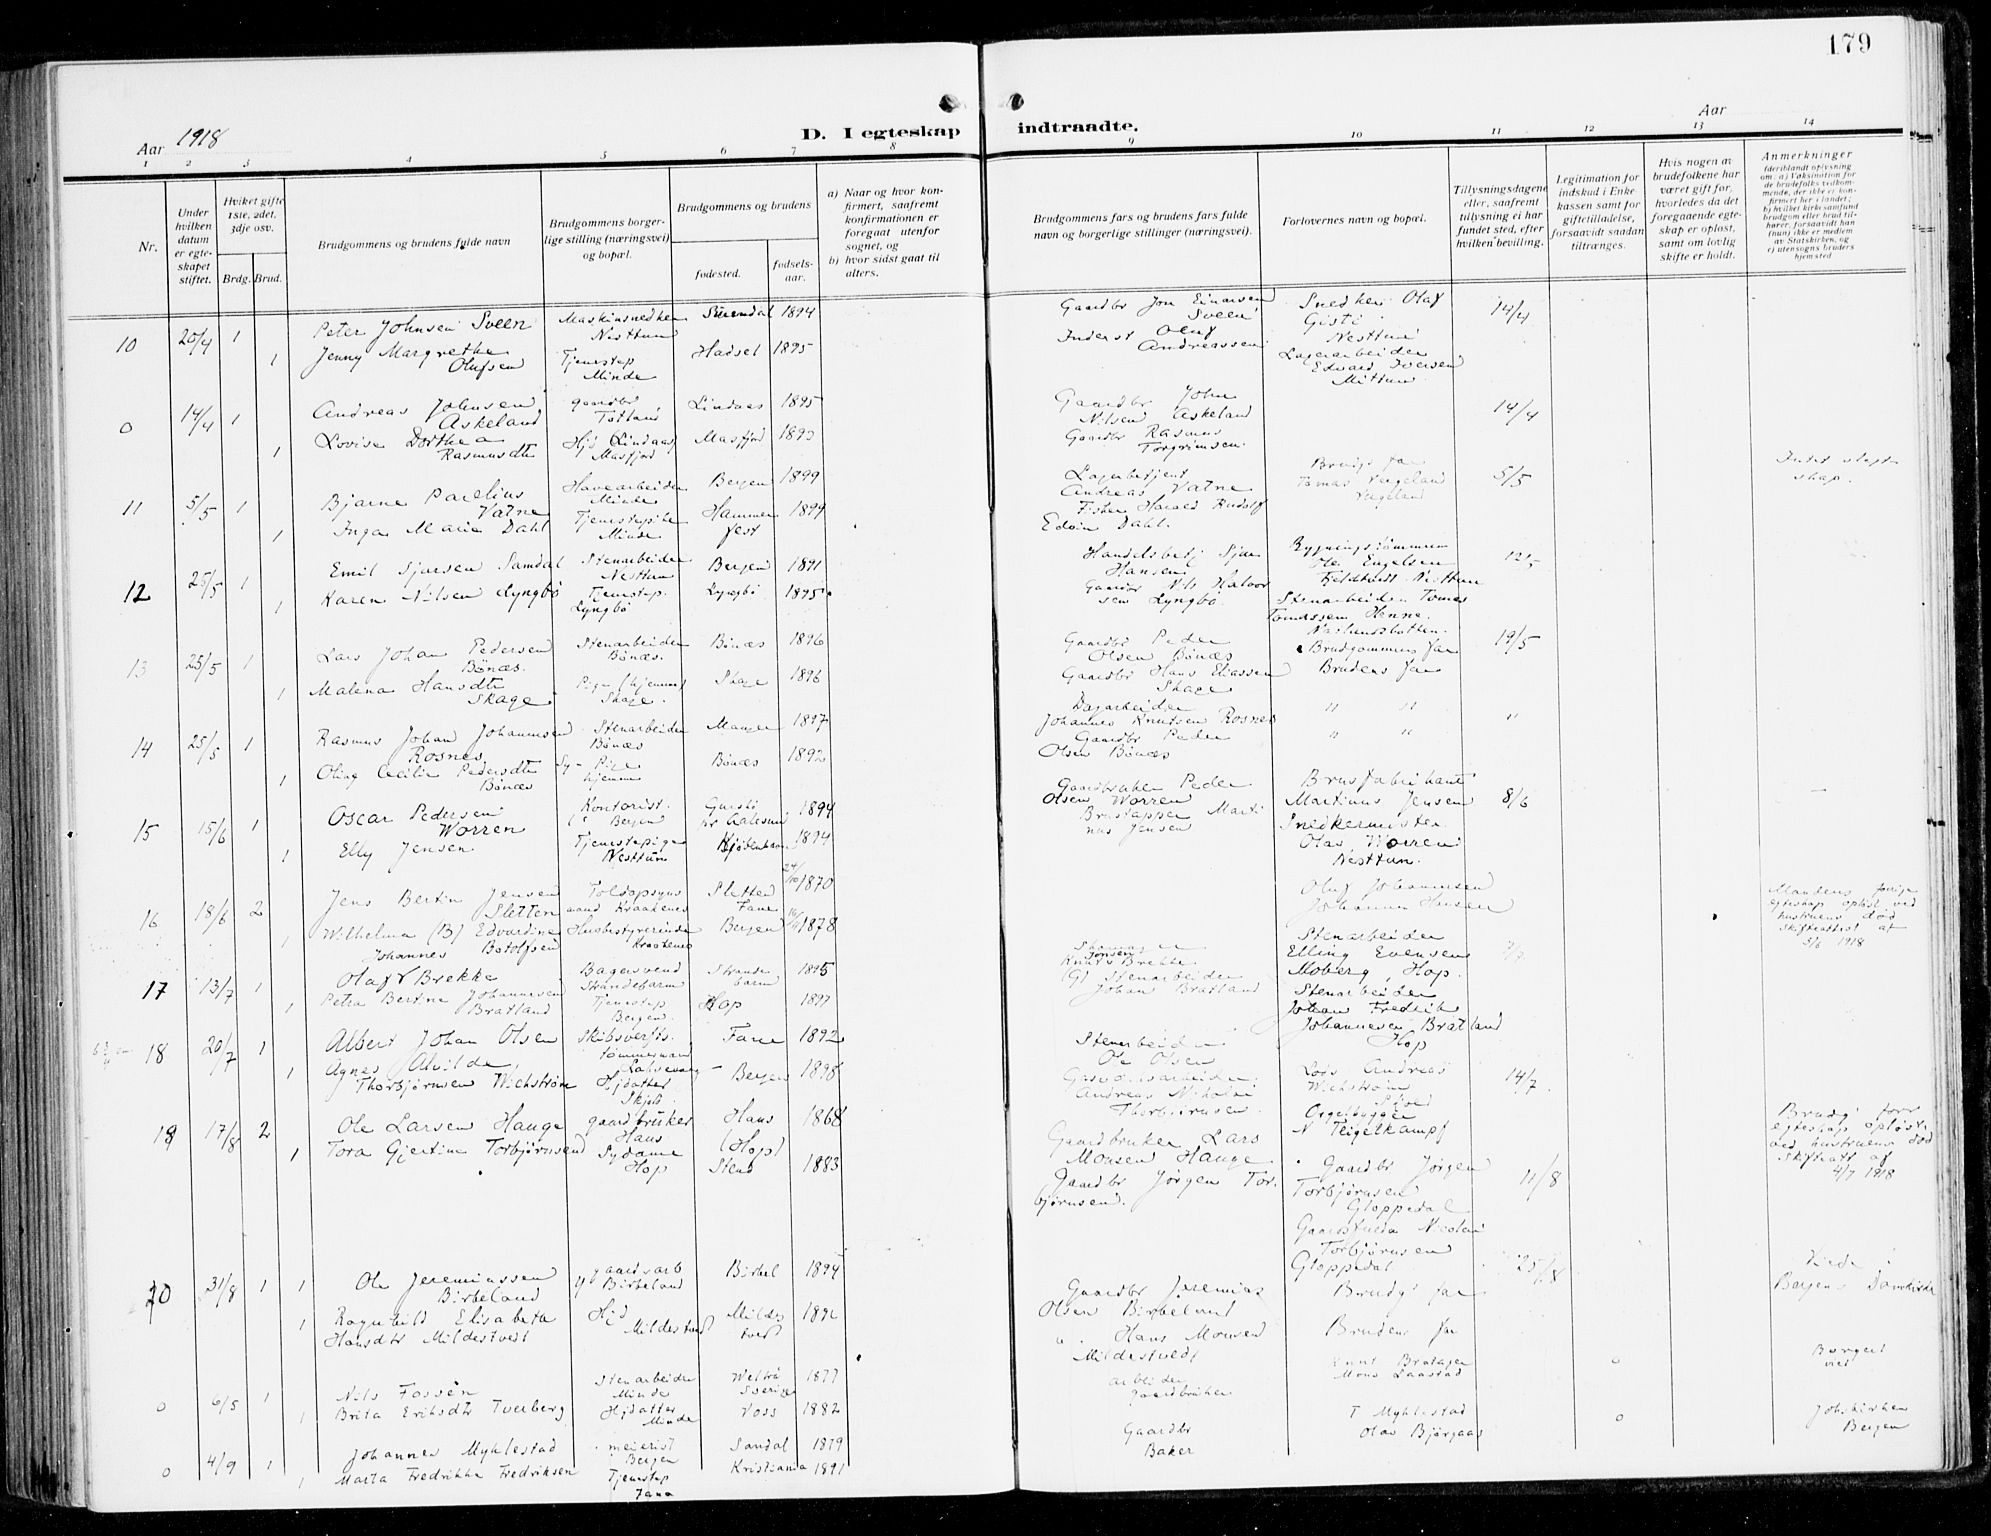 179
Aar 1918
D. I egteskap indtraadte.
Aar
1 2 3 4 5 6 7 8 9 10 11 12 13 14
Nr.
Under hvilken datum er egteskapet stiftet.
Hvilket gifte 1ste, 2det, 3dje osv.
Brdg. Brud.
Brudgommens og brudens fulde navn
Brudgommens borgerlige stilling (næringsvei) og bopæl.
Brudgommens og brudens
fødested.
fødselsaar.
a) Naar og hvor konfirmert, saafremt konfirmationen er foregaat utenfor sognet, og
b) hvor sidst gaat til alters.
Brudgommens fars og brudens fars fulde navn og borgerlige stillinger (næringsvei).
Forlovernes navn og bopæl.
Tillysningsdagene eller, saafremt tillysning ei har fundet sted, efter hvilken bevilling.
Legitimation for indskud i Enkekassen samt for giftetilladelse, forsaavidt saadan tiltrænges.
Hvis nogen av brudefolkene har været gift før, hvorledes da det foregaaende egteskap er opløst, samt om lovlig skifte er holdt.
Anmerkninger
(deriblandt oplysning om: a) Vaksination for de brudefolks vedkommende, der ikke er konfirmert her i landet; b) hvilket kirkesamfund brudgom eller brud tilhører, forsaavidt han (hun) ikke er medlem av Statskirken, og c) utensogns bruders hjemsted
10 20/4 1 Peter Johnsen Sveen Maskinsnedker Nesttun Surendal 1894 Gaardbr Jon Einarsen Sveen Snedker Olaf Gisti Nesttun 14/4
1 Jenny Margrethe Olufsen Tjenestep Minde Hadsel 1895 Inderst Oluf Andreassen Lagerarbeider Edvard Iversen Mittun
0 14/4 1 Andreas Johnsen Askeland gaardbr Totland Lindaas 1895 Gaardbr John Nilsen Askeland 14/4
1 Lovise Dorthea Rasmusdtr Hjd Lindaas Masfjord Masfjord 1893 Gaardbr Rasmus Torgrimsen
11 5/5 1 Bjarne Parelius Vatne Havearbeider Minde Bergen 1899 Lagerbetjent Andreas Vatne Brudgs far Tomas Vegeland Vegeland 5/5 Intet slegtskap.
1 Inga Marie Dahl Tjenestepike Minde Hammerfest 1899 Fisker Harald Rudolf Edvin Dahl.
12 25/5 1 Emil Sjursen Samdal Stenarbeider Nesttun Bergen 1891 Handelsbetj Sjur Hansen Bygningstømmerm Ole Engelsen Nesttun 12/5
1 Karen Nilsen Lyngbö Tjenestep. Lyngbö Lyngbö 1895 Gaardbr Nils Halvorsen Lyngbö Stenarbeider Tomas Tomassen Henne
13 25/5 1 Lars Johan Pedersen Bönæs. Stenarbeider Bönæs. Bönæs 1896 Gaardbr Peder Olsen Bönæs Brudgommens far 19/5
1 Malena Hansdtr Skage Pige (hjemme) Skage. Skage 1896 Gaardbr Hans Eliassen Skage Brudens far
14 25/5 1 Rasmus Johan Johannesen Rosnes Stenarbeider Bönæs Manger 1897 Dagarbeider Johannes Knutsen Rosnes " " "
1 Olina Cecilie Pedersdtr Bönæs Sy-Pige hjemme Bönæs 1892 Gaardbr Peder Olsen Bönæs " "
15 15/6 1 Oscar Pedersen Worren Kontorist. Bergen Aalesund 1894 Gaardbruker Peder Olsen Worren Brusfabrikant Martinus Jensen 8/6
1 Elly Jensen Tjenestepige Nesttun Kjøbenhavn 1894 Brustapper Martinus Jensen Snedkermester Olav Worren Nesttun.
16 18/6 2 Jens Bertin Jensen Sletten Toldopsynsmand Kraakenes Sletten Fane 24/10 1870 Oluf Johannesen Johannes Hansen Mandens forrige egteskap opløst ved hustruens död Skifteattest af 5/6 1918
1 Wilhelmine (B) Edvardine Johannes Botolfsen Husbestyrerinde Kraakenes Bergen 1878
17 13/7 1 Olaf Brekke Bagersvend Strandebarm Strandebarm 1895 Jonsen Knut Brekke Stenarbeider Elling Evensen Moberg, Hop.
1 Petra Bertine Johannesen Bratland Tjenestep Bergen. Hop 1897 (G) Stenarbeider Johan Bratland Stenarbeider Johan Fredrik Johannesen Bratland Hop
18 20/7 1 Albert Johan Olsen Skibsverfts. tømmermand Laksevaag Fane 1892 Stenarbeider Ole Olsen
1 Agnes Alvilde Thorbjörnsen Wichström Hjdatter Skjold Bergen 1898 Andreas Nikolai Thorbjörnsen Andreas Wichström 14/7
19 17/8 2 Ole Larsen Hauge gaardbruker Haus Haus 1868 Gaardbruker Lars Monsen Hauge Orgelbygger N Teigelkampf Brudgs forr egteskap opløst ved hustruens död Skifteatt af 4/7 1918
1 Tora Gjertine Torbjörnsen Sydame Hop (Hop) Stend 1883 Gaardbr Jörgen Torbjörnsen. Gaardbr Jörgen Torbjörnsen Gloppedal 11/8
Nicolai Torbjörnsen Gloppedal
20 31/8 1 1 Ole Jeremiassen Birkeland gaardsarb Birkeland Birkel 1894 Gaardbr Jeremias Olsen Birkeland Brudgs far 25/8 Viede i Bergens Domkirke
1 Ragnhild Elisabeta Hansdtr Mildestvedt Hjd Mildestvedt Mildestvedt 1892 Hans Monsen Mildestvedt Brudens far
0 6/5 1 Nils Fossén Stenarbeider Minde Sverige 1877 arbeider Knut Bratager Mons Laastad 0 Borgerl viet
1 Brita Eriksdtr Tverberg Hjdatter Minde Voss 1882 gaardbruker
0 4/9 1 Johannes Myklestad meierist Bergen Sandal 1879 Gaardbr T Myklestad Olav Bjørgaas 0 Johskirken Bergen
1 Marta Fredrikke Fredriksen Tjenestep Fana Kristiania 1891 Baker